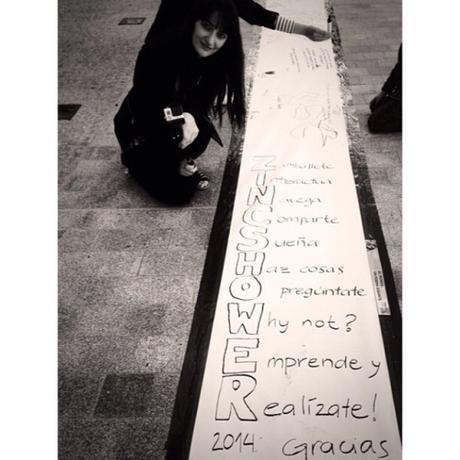 Zambúllete
Interactúa
Navega
Comparte
Sueña
Haz cosas
pregúntate
Why not?
Emprende y
Realízate!
2014 Gracias